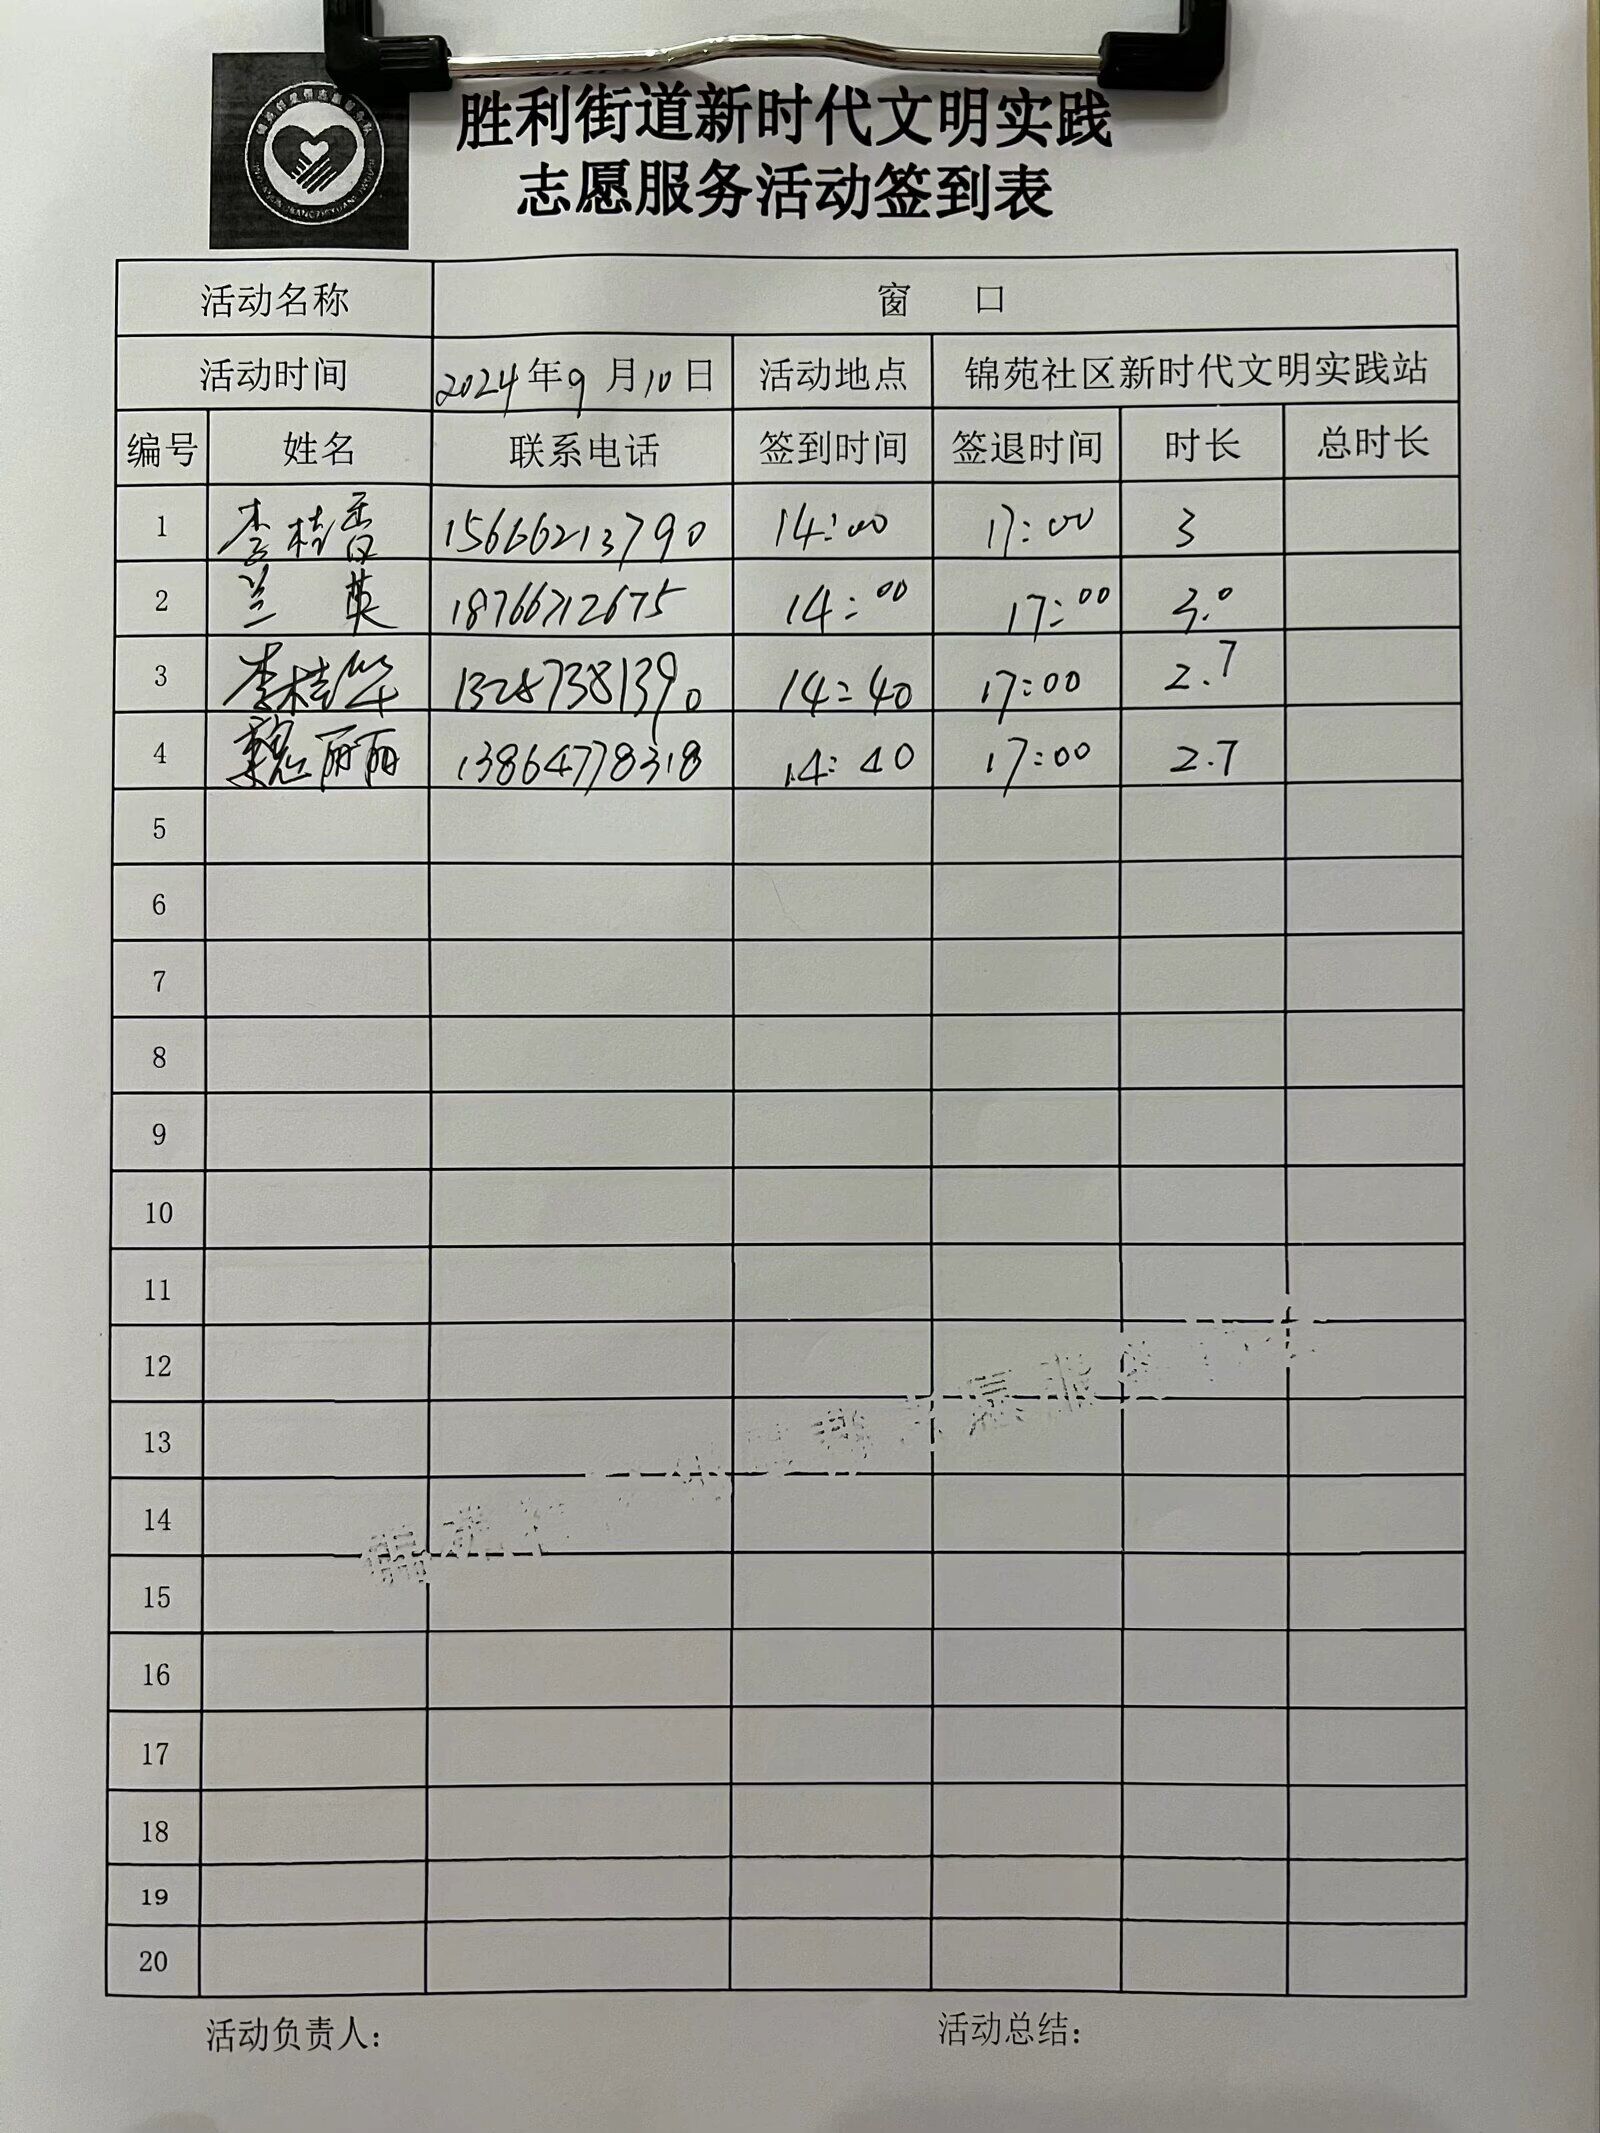 胜利街道新时代文明实践
志愿服务活动签到表
活动名称 窗 口
活动时间 2024年9月10日 活动地点 锦苑社区新时代文明实践站
编号 姓名 联系电话 签到时间 签退时间 时长 总时长
1 李桂香 15666213790 14:00 17:00 3
2 兰英 18766712675 14:00 17:00 3.0
3 李桂华 13287381390 14:40 17:00 2.7
4 魏丽丽 13864778318 14:40 17:00 2.7
5
6
7
8
9
10
11
12
13
14
15
16
17
18
19
20
活动负责人: 活动总结: